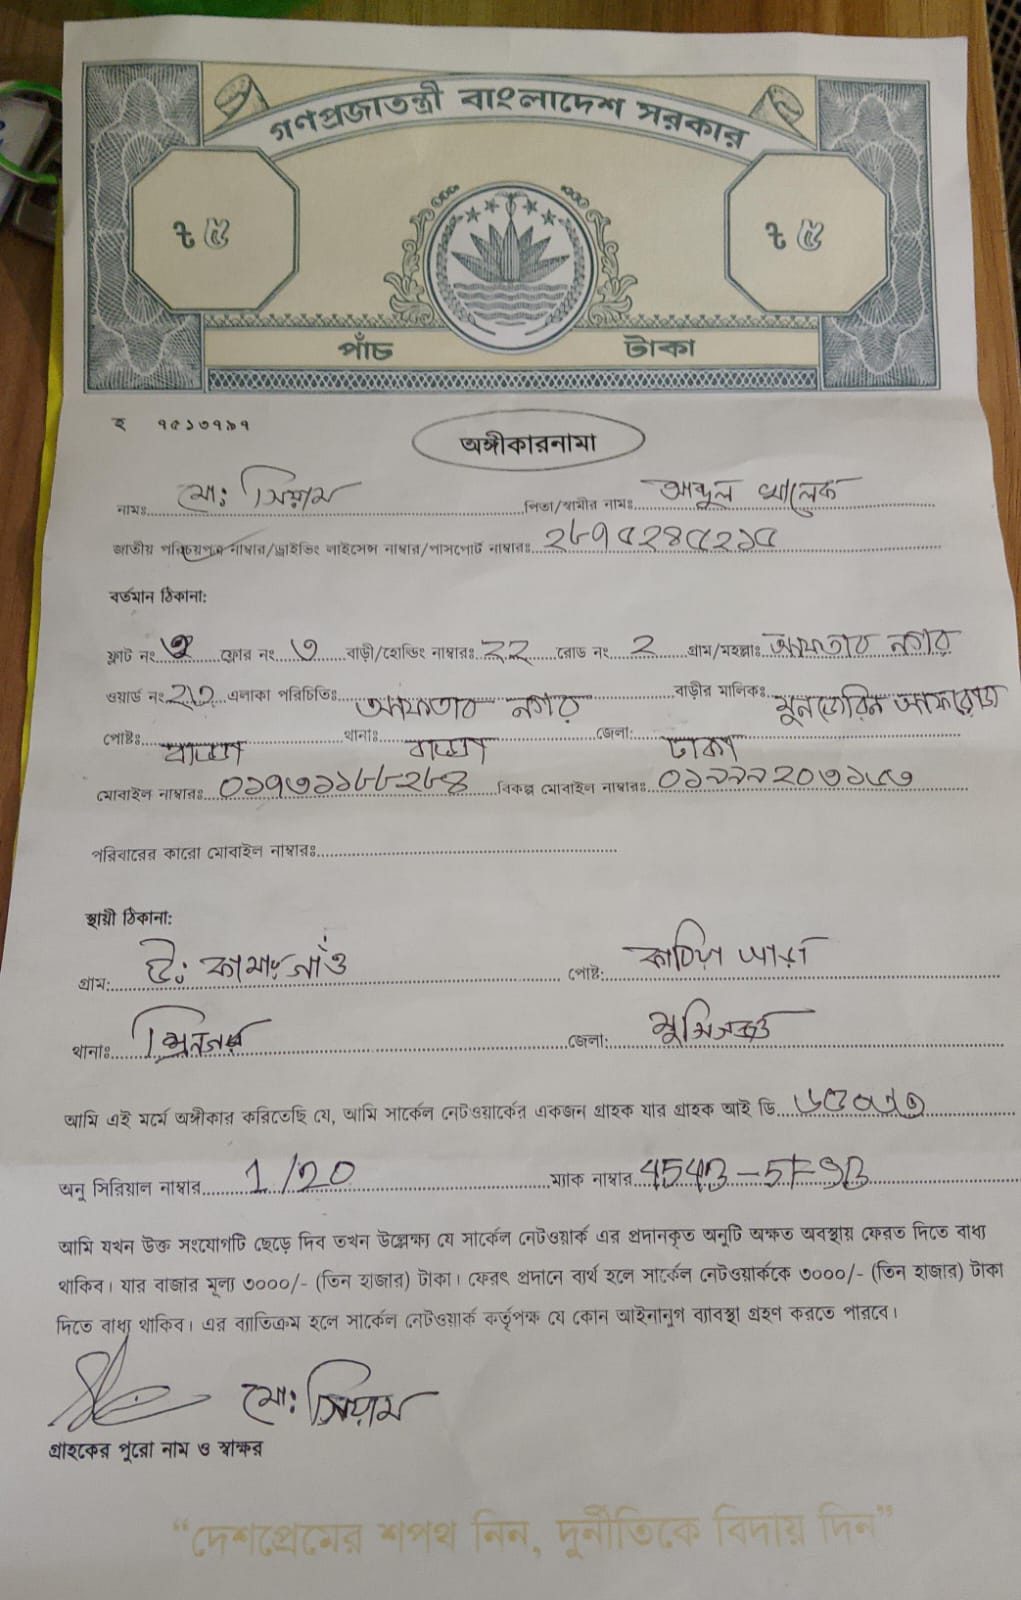 গণপ্রজাতন্ত্রী বাংলাদেশ সরকার
৳ ৫ ৳ ৫
পাঁচ টাকা
হ ৭৫১৩৭৯৭
অঙ্গীকারনামা
নামঃ মো: সিয়াম পিতা/স্বামীর নামঃ আব্দুল খালেক
জাতীয় পরিচয়পত্র নাম্বার/ড্রাইভিং লাইসেন্স নাম্বার/পাসপোর্ট নাম্বারঃ ২৮৭৫২৪৫২১৫
বর্তমান ঠিকানা:
ফ্লাট নং ফ্লোর নং ৩ বাড়ী/হোল্ডিং নাম্বারঃ ২২ রোড নং ২ গ্রাম/মহল্লাঃ আফতাব নগর
ওয়ার্ড নং এলাকা পরিচিতিঃ আফতাব নগর বাড়ীর মালিকঃ
পোষ্টঃ বাড্ডা থানাঃ বাড্ডা জেলা: ঢাকা
মোবাইল নাম্বারঃ ০১৭৩১১৮৮২৮৪ বিকল্প মোবাইল নাম্বারঃ
পরিবারের কারো মোবাইল নাম্বারঃ
স্থায়ী ঠিকানা:
গ্রাম: উ: কামারগাঁও পোষ্ট:
থানাঃ জেলা:
আমি এই মর্মে অঙ্গীকার করিতেছি যে, আমি সার্কেল নেটওয়ার্কের একজন গ্রাহক যার গ্রাহক আই ডি
অনু সিরিয়াল নাম্বার 1/20 ম্যাক নাম্বার 4543-5F-9B
আমি যখন উক্ত সংযোগটি ছেড়ে দিব তখন উল্লেক্ষ্য যে সার্কেল নেটওয়ার্ক এর প্রদানকৃত অনুটি অক্ষত অবস্থায় ফেরত দিতে বাধ্য
থাকিব। যার বাজার মূল্য ৩০০০/- (তিন হাজার) টাকা। ফেরৎ প্রদানে ব্যর্থ হলে সার্কেল নেটওয়ার্ককে ৩০০০/- (তিন হাজার) টাকা
দিতে বাধ্য থাকিব। এর ব্যতিক্রম হলে সার্কেল নেটওয়ার্ক কর্তৃপক্ষ যে কোন আইনানুগ ব্যাবস্থা গ্রহণ করতে পারবে।
মো: সিয়াম
গ্রাহকের পুরো নাম ও স্বাক্ষর
“দেশপ্রেমের শপথ নিন, দুর্নীতিকে বিদায় দিন”